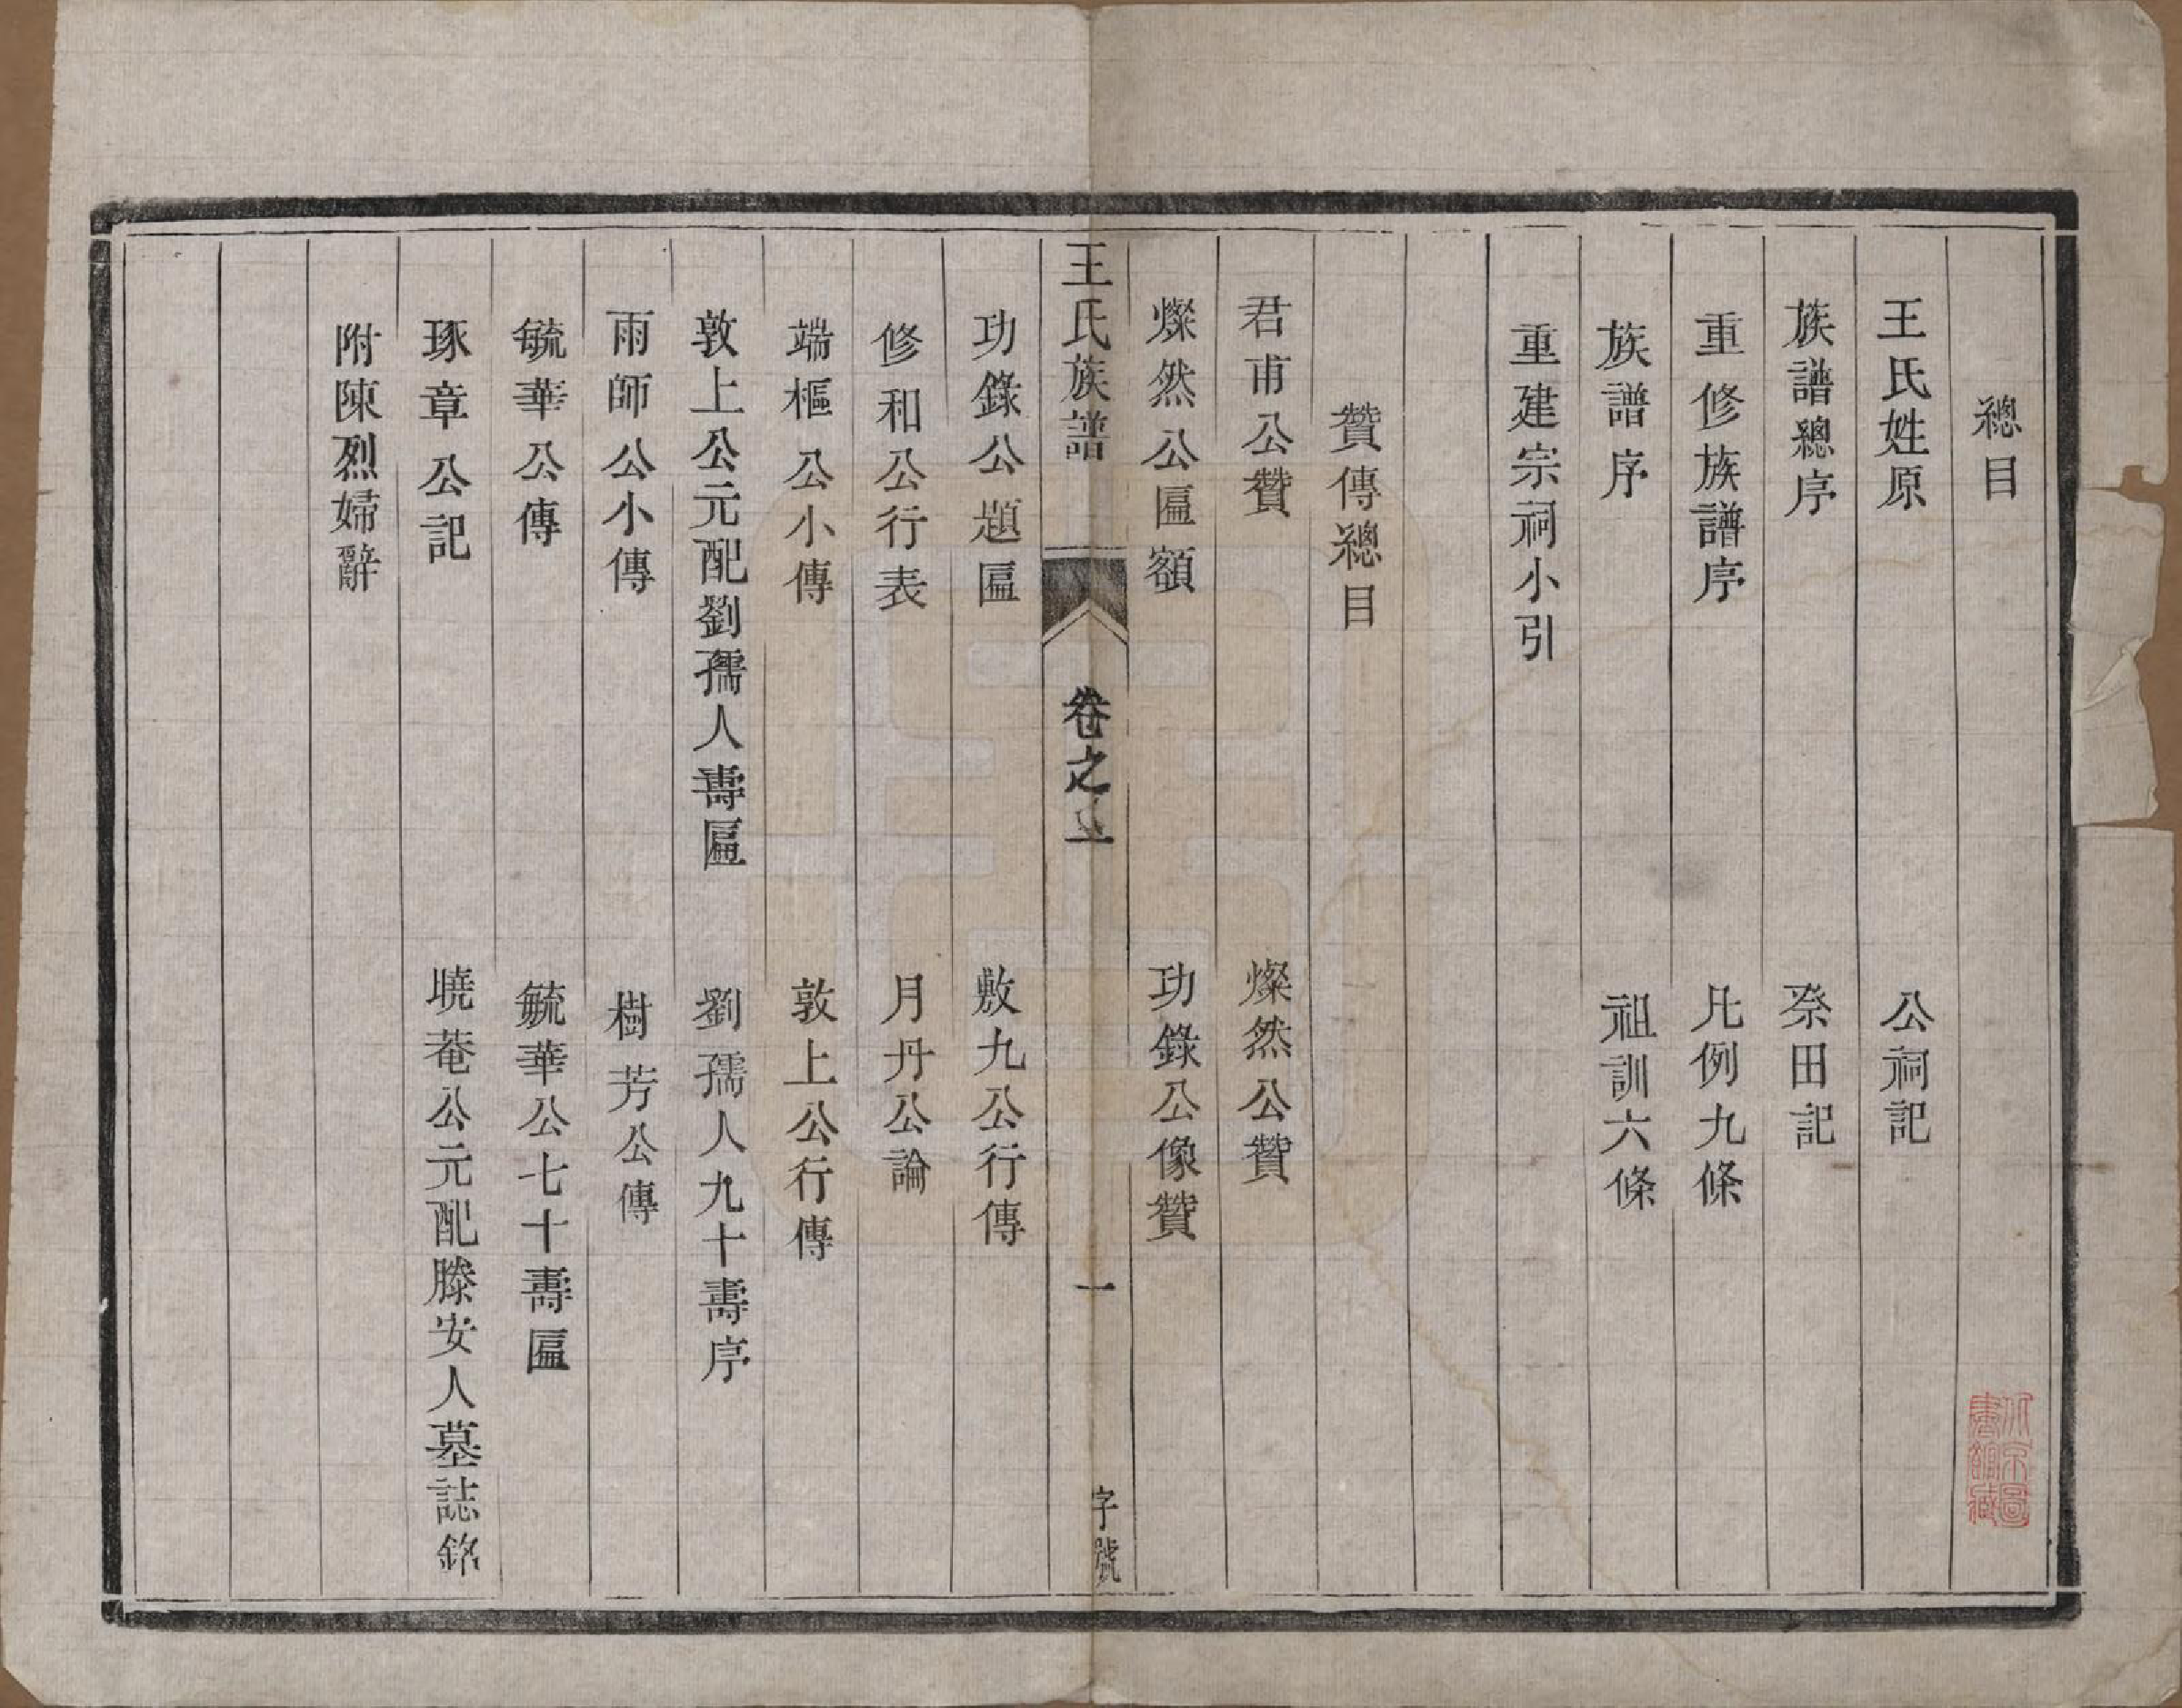 總目
王氏姓原　公祠記
族譜總序　祭田記
重修族譜序　凡例九條
族譜序　祖訓六條
重建宗祠小引
贊傳總目
君甫公贊　燦然公贊
燦然公匾額　功錄公像贊
王氏族譜　卷之　一　字號
功錄公題匾　敷九公行傳
修和公行表　月丹公論
端樞公小傳　敦上公行傳
敦上公元配劉孺人壽匾　劉孺人九十壽序
雨師公小傳　樹芳公傳
毓華公傳　毓華公七十壽匾
琢章公記　曉菴公元配滕安人墓誌銘
附陳烈婦辭
北京圖書館藏